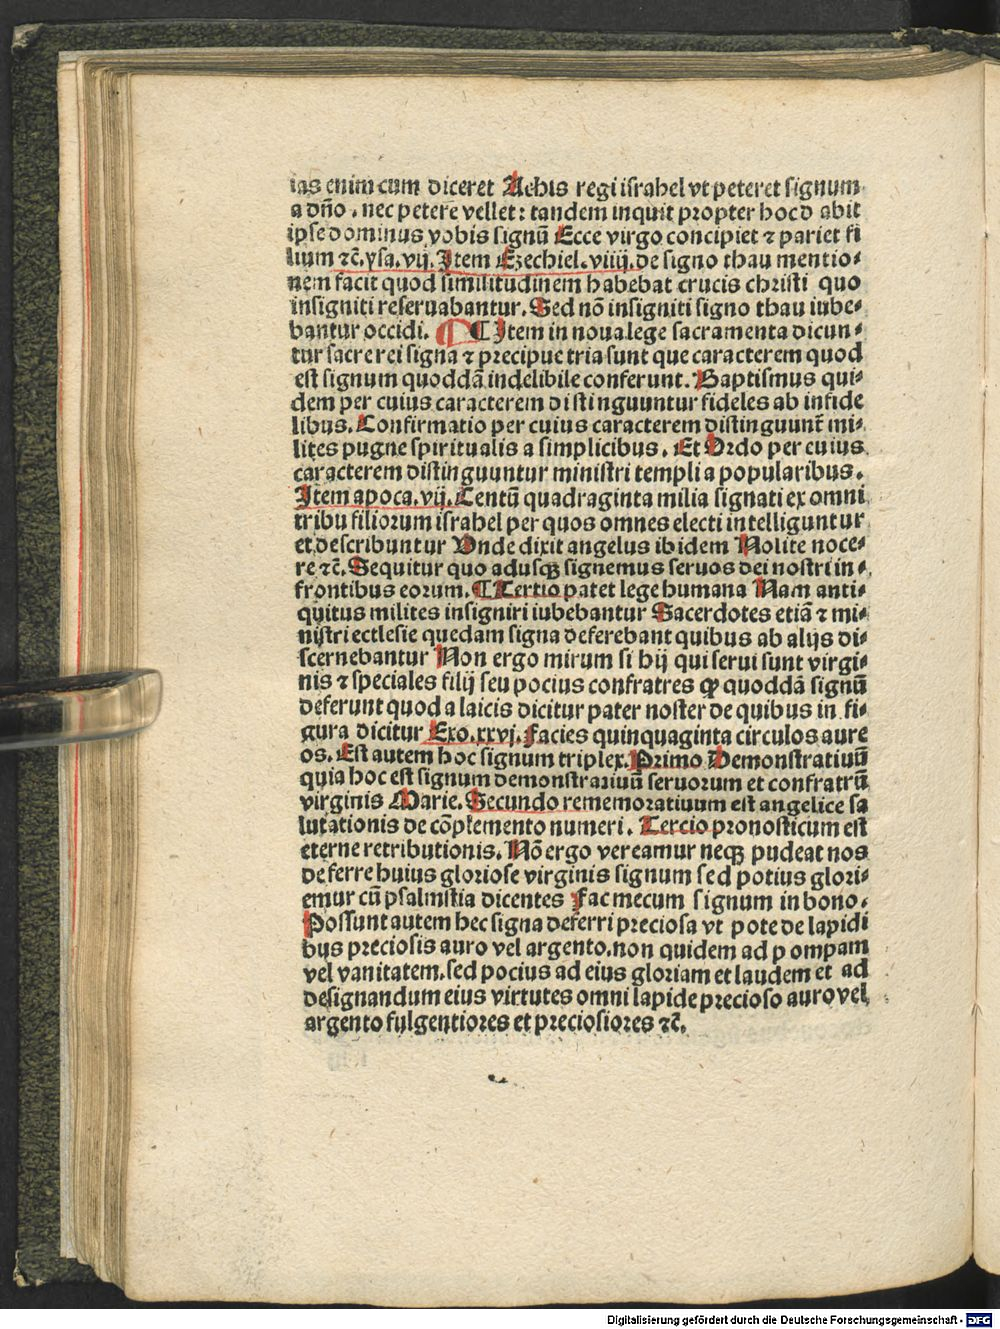 ias enim cum diceret Achis regi israhel vt peteret signum
a dño . nec petere vellet: tandem inquit propter hoc d abit
ipse dominus vobis signū Ecce virgo concipiet ⁊ pariet fi
lium ⁊c̄. ysa. vij. Item Ezechiel. viiij. de signo thau mentio⸗
nem facit quod similitudinem habebat crucis christi quo
insigniti reseruabantur. Sed nō insigniti signo thau iube⸗
bantur occidi. ¶ Item in noua lege sacramenta dicun⸗
tur sacre rei signa ⁊ precipue tria sunt que caracterem quod
est signum quoddā indelibile conferunt. Baptismus qui⸗
dem per cuius caracterem distinguuntur fideles ab infide
libus. Confirmatio per cuius caracterem distinguunt̄ mi⸗
lites pugne spiritualis a simplicibus. Et Ordo per cuius
caracterem distinguuntur ministri templi a popularibus.
Item apoca. vij. Centū quadraginta milia signati ex omni
tribu filiorum israhel per quos omnes electi intelliguntur
et describuntur Vnde dixit angelus ibidem Nolite noce⸗
re ⁊c̄. Sequitur quo adusqꝫ signemus seruos dei nostri in⸗
frontibus eorum. ¶ Tertio patet lege humana Nam anti⸗
quitus milites insigniri iubebantur Sacerdotes etiā ⁊ mi⸗
nistri ecclesie quedam signa deferebant quibus ab alijs di⸗
scernebantur Non ergo mirum si hij qui serui sunt virgi⸗
nis ⁊ speciales filij seu pocius confratres ꝙ quoddā signū
deferunt quod a laicis dicitur pater noster de quibus in fi⸗
gura dicitur Exo. xxvj. Facies quinquaginta circulos aure
os. Est autem hoc signum triplex. Primo Demonstratiuū
quia hoc est signum demonstratiuū seruorum et confratrū
virginis Marie. Secundo rememoratiuum est angelice sa
lutationis de cōplemento numeri. Tercio pronosticum est
eterne retributionis. Nō ergo vereamur neqꝫ pudeat nos
deferre huius gloriose virginis signum sed potius glori⸗
emur cū psalmistia dicentes Fac mecum signum in bono.
Possunt autem hec signa deferri preciosa vt pote de lapidi
bus preciosis auro vel argento. non quidem ad pompam
vel vanitatem. sed pocius ad eius gloriam et laudem et ad
designandum eius virtutes omni lapide precioso auro vel
argento fulgentiores et preciosiores ⁊c̄.
Digitalisierung gefördert durch die Deutsche Forschungsgemeinschaft - DFG